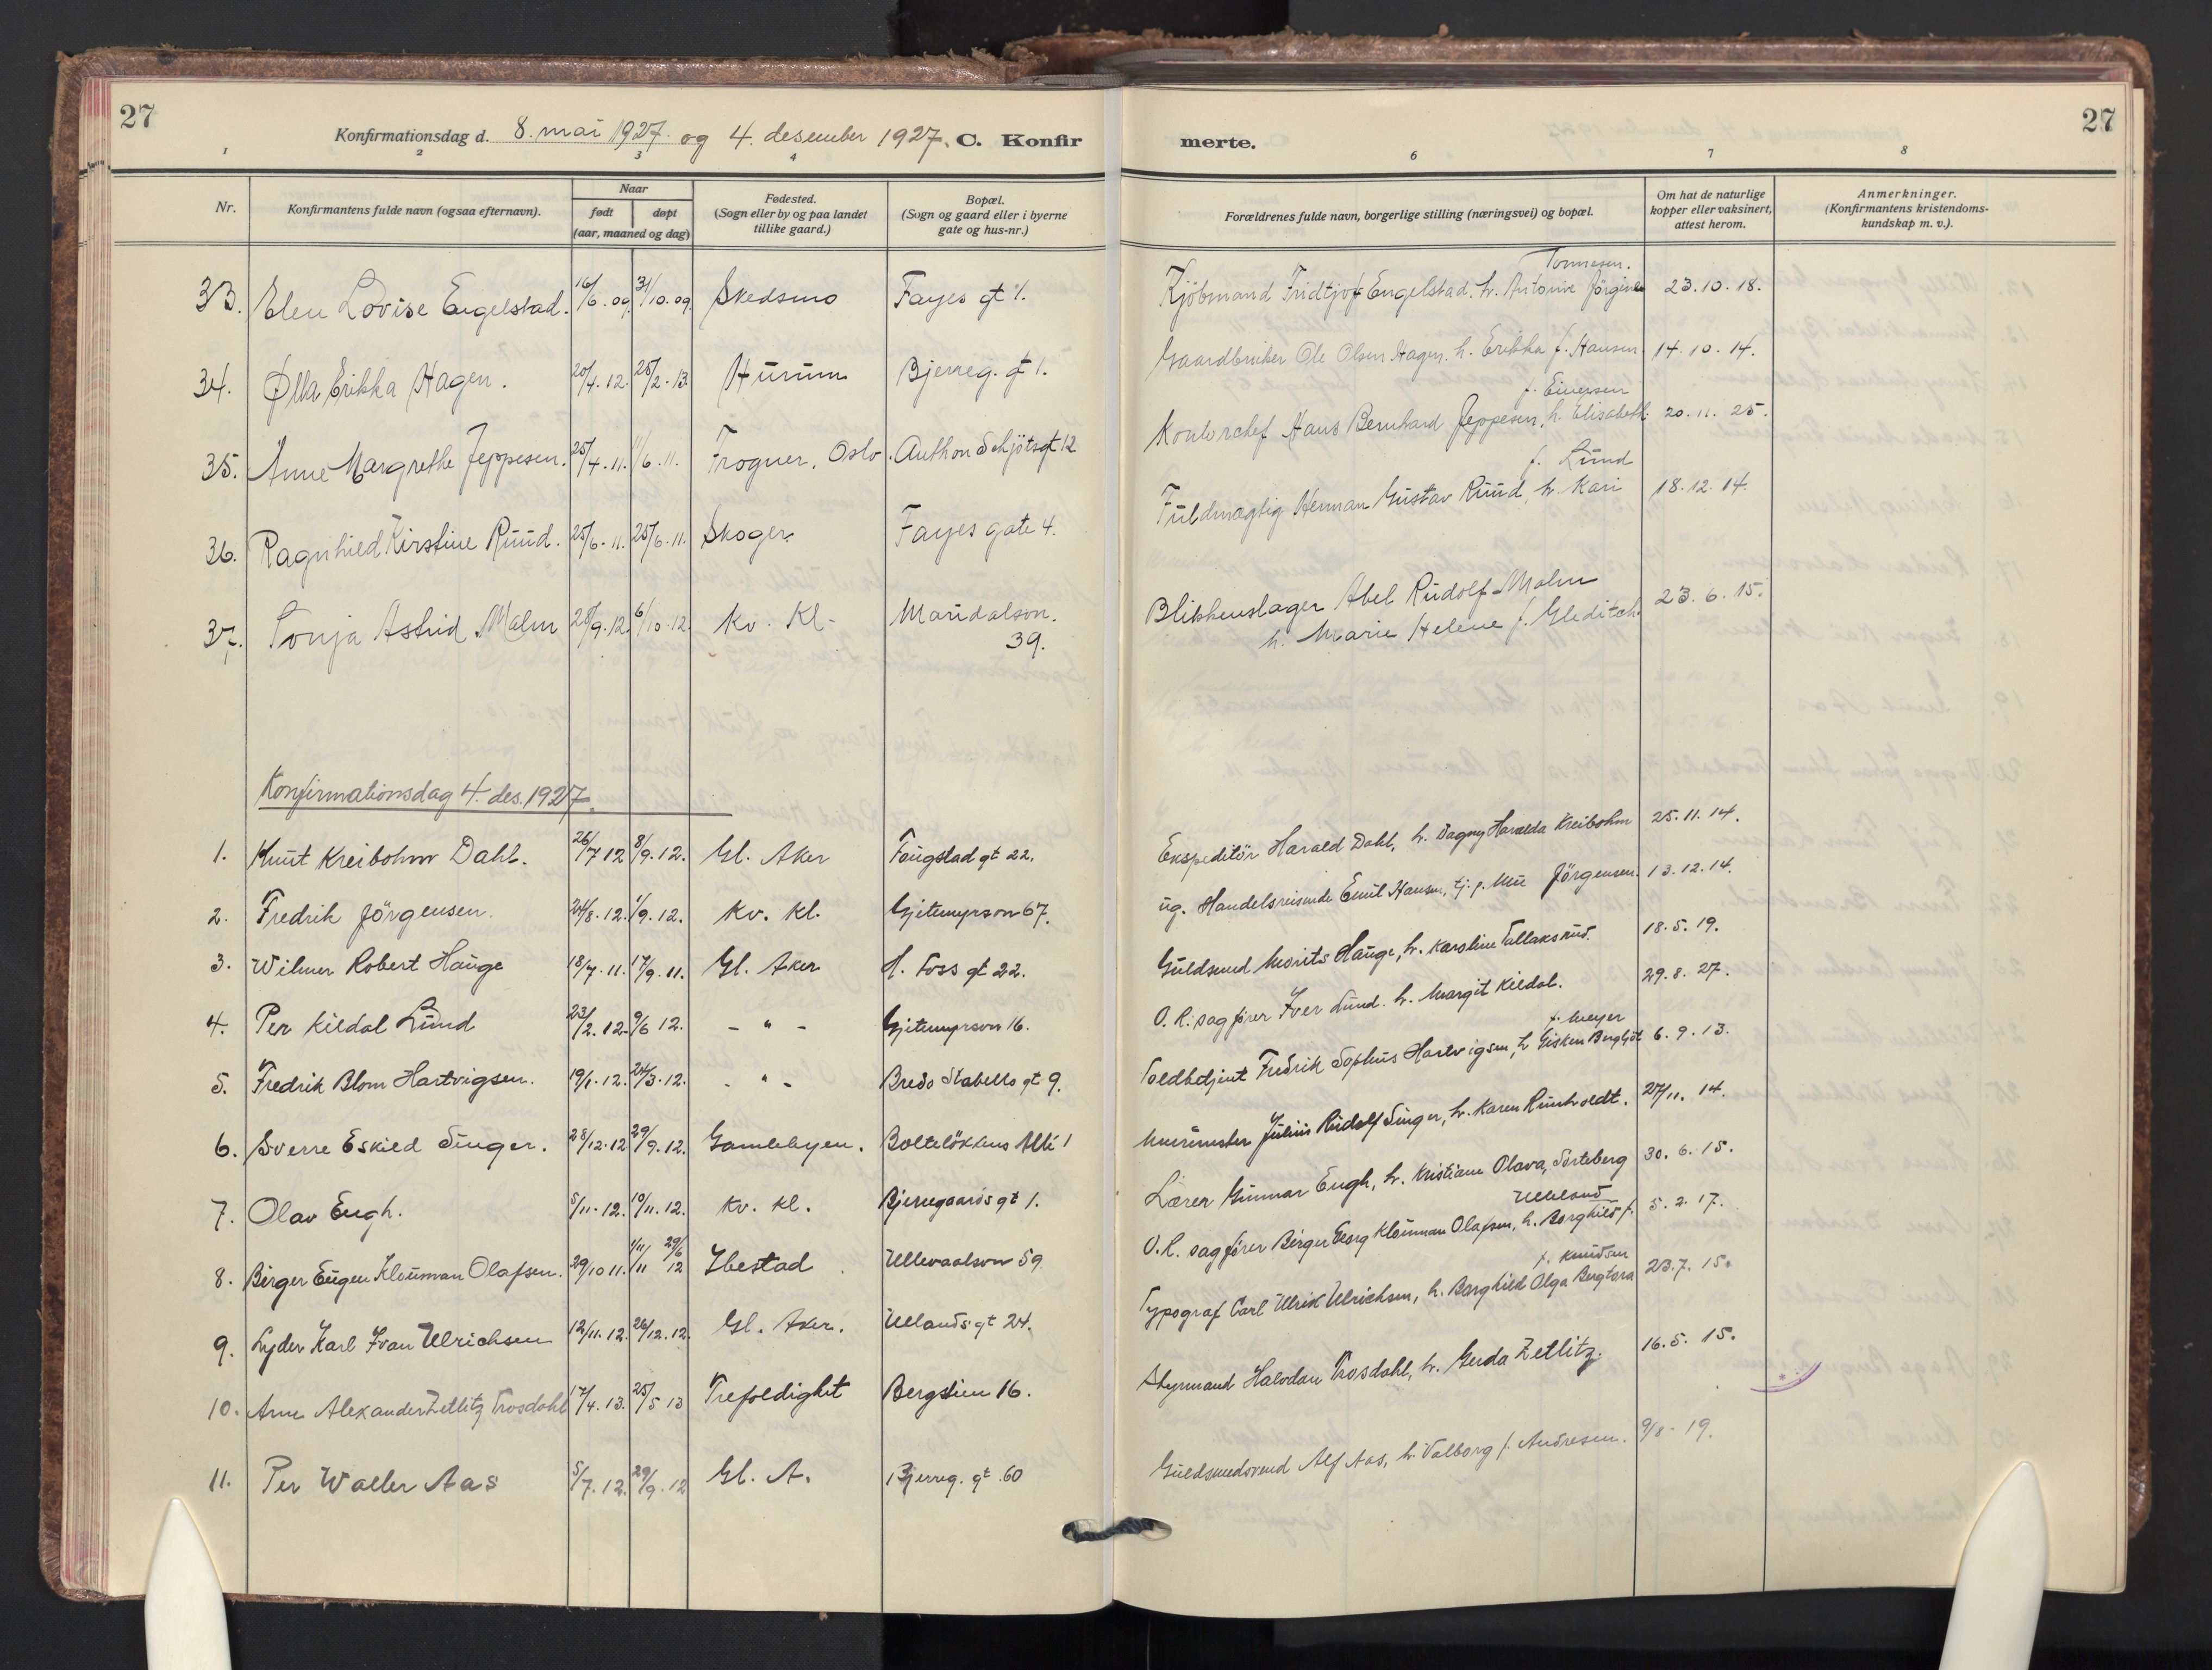 27
Konfirmationsdag d. 8. mai 1927. og 4. desember 1927. C. Konfir
merte.
27
1 2 3 4 6 7 8
Nr.
Konfirmantens fulde navn (ogsaa efternavn).
Naar
født døpt
(aar, maaned og dag)
Fødested.
(Sogn eller by og paa landet
tillike gaard.)
Bopæl.
(Sogn og gaard eller i byerne
gate og hus-nr.)
Forældrenes fulde navn, borgerlige stilling (næringsvei) og bopæl.
Om hat de naturlige
kopper eller vaksinert,
attest herom.
Anmerkninger.
(Konfirmantens kristendoms-
kundskap m. v.).
Tonnesen.
33. Elen Lovise Engelstad. 16/6.09. 31/10.09. Skedsmo Fayes gt 1. Kjöbmand Fridtjof Engelstad. h. Antonie Jörgine 23.10.18.
34. Ølla Erikka Hagen. 20/4.12. 25/2.13. Hurum Bjerreg. gt 1. Gaardbruker Ole Olsen Hagen. h. Erikka f. Hansen. 14.10.14.
f. Eivesen
35. Anne Margrethe Jeppesen. 25/4.11. 11/6.11. Frogner, Oslo. Anthon Schjötsgt 12 Kontorchef Hans Bernhard Jeppesen, h. Elisabeth 20.11.25.
f. Lund
36. Ragnhild Kirstine Ruud. 25/6.11. 25/6.11. Skoger. Fayes gate 4. Fuldmægtig Herman Gustav Ruud, h. Kari 18.12.14.
37. Sonja Astrid Malm 28/9.12. 6/10.12. Kv. Kl. Maridalsvn. Blikkenslager Abel Rudolf Malm 23.6.15.
39. h. Marie Helene f. Gleditch.
Konfirmationsdag 4. des. 1927.
1. Knut Kreibohm Dahl. 26/7 12 8/9.12. Gl. Aker Faugstad gt 22. Ekspeditör Harald Dahl, h. Dagny Haralda Kreibohm 25.11.14.
2. Fredrik Jörgensen. 24/8.12. 1/9.12. Kv. Kl. Gjetemyrsvn 67. ug. Handelsreisende Emil Hansen, tj. p. Jörgensen. 13.12.14.
3. Wilmer Robert Hauge 18/7.11. 17/9.11. Gl. Aker H. Foss gt 22. Guldsmed Morits Hauge, h. Karoline Tallaksrud. 18.5.19.
4. Per Kildal Lund 23/2.12. 9/6 12. - " - Gjetemyrsvn 16. O. R. sagfører Iver Lund. h. Margit Kildal. 29.8.27.
f. Meyer
5. Fredrik Blom Hartvigsen. 19/1.12. 24/3.12. - " - Bredo Stabells gt 9. Toldbetjent Fredrik Sophus Hartvigsen, h Gisken Bergljot 6.9.13.
6. Sverre Eskild Singer. 28/12.12 29/9.12. Gamlebyen. Boltelökkens Allé 1 Murermester Julius Rudolf Singer, h. Karen Rünholdt. 27/11.14.
7. Olav Engh. 5/11.12. 10/11.12. Kv. Kl. Bjerregaards gt 1. Lærer Gunnar Engh, h. Kristiane Olava, Sorteberg 30.6.15.
Ulleland
8. Birger Eugen Klouman Olafsen. 29/10 11. 1/11/11 29/6 12 Ibestad Ullevaalsvn 59 O. R. sagfører Birger Georg Klouman Olafsen, h. Borghild f. 5.2.17.
f. Knudsen
9. Lyder Karl Ivan Ulrichsen 12/11.12. 26/12.12. Gl. Aker. Ullands gt 24. Typograf Carl Ulrik Ulrichsen, h. Borghild Olga Bergtora 23.7.15.
10. Arne Alexander Zetlitz Trosdahl 17/4.13. 25/5 13 Trefoldighet Bergstien 16. Styrmand Halvdan Trosdahl, h. Gerda Zetlitz. 16.5.15.
11. Per Waller Aas 5/7.12. 29/9.12 Gl. A. Bjerreg. gt. 60 Guldsmedsvend Alf Aas, h. Valborg f. Andresen. 9/8-19.